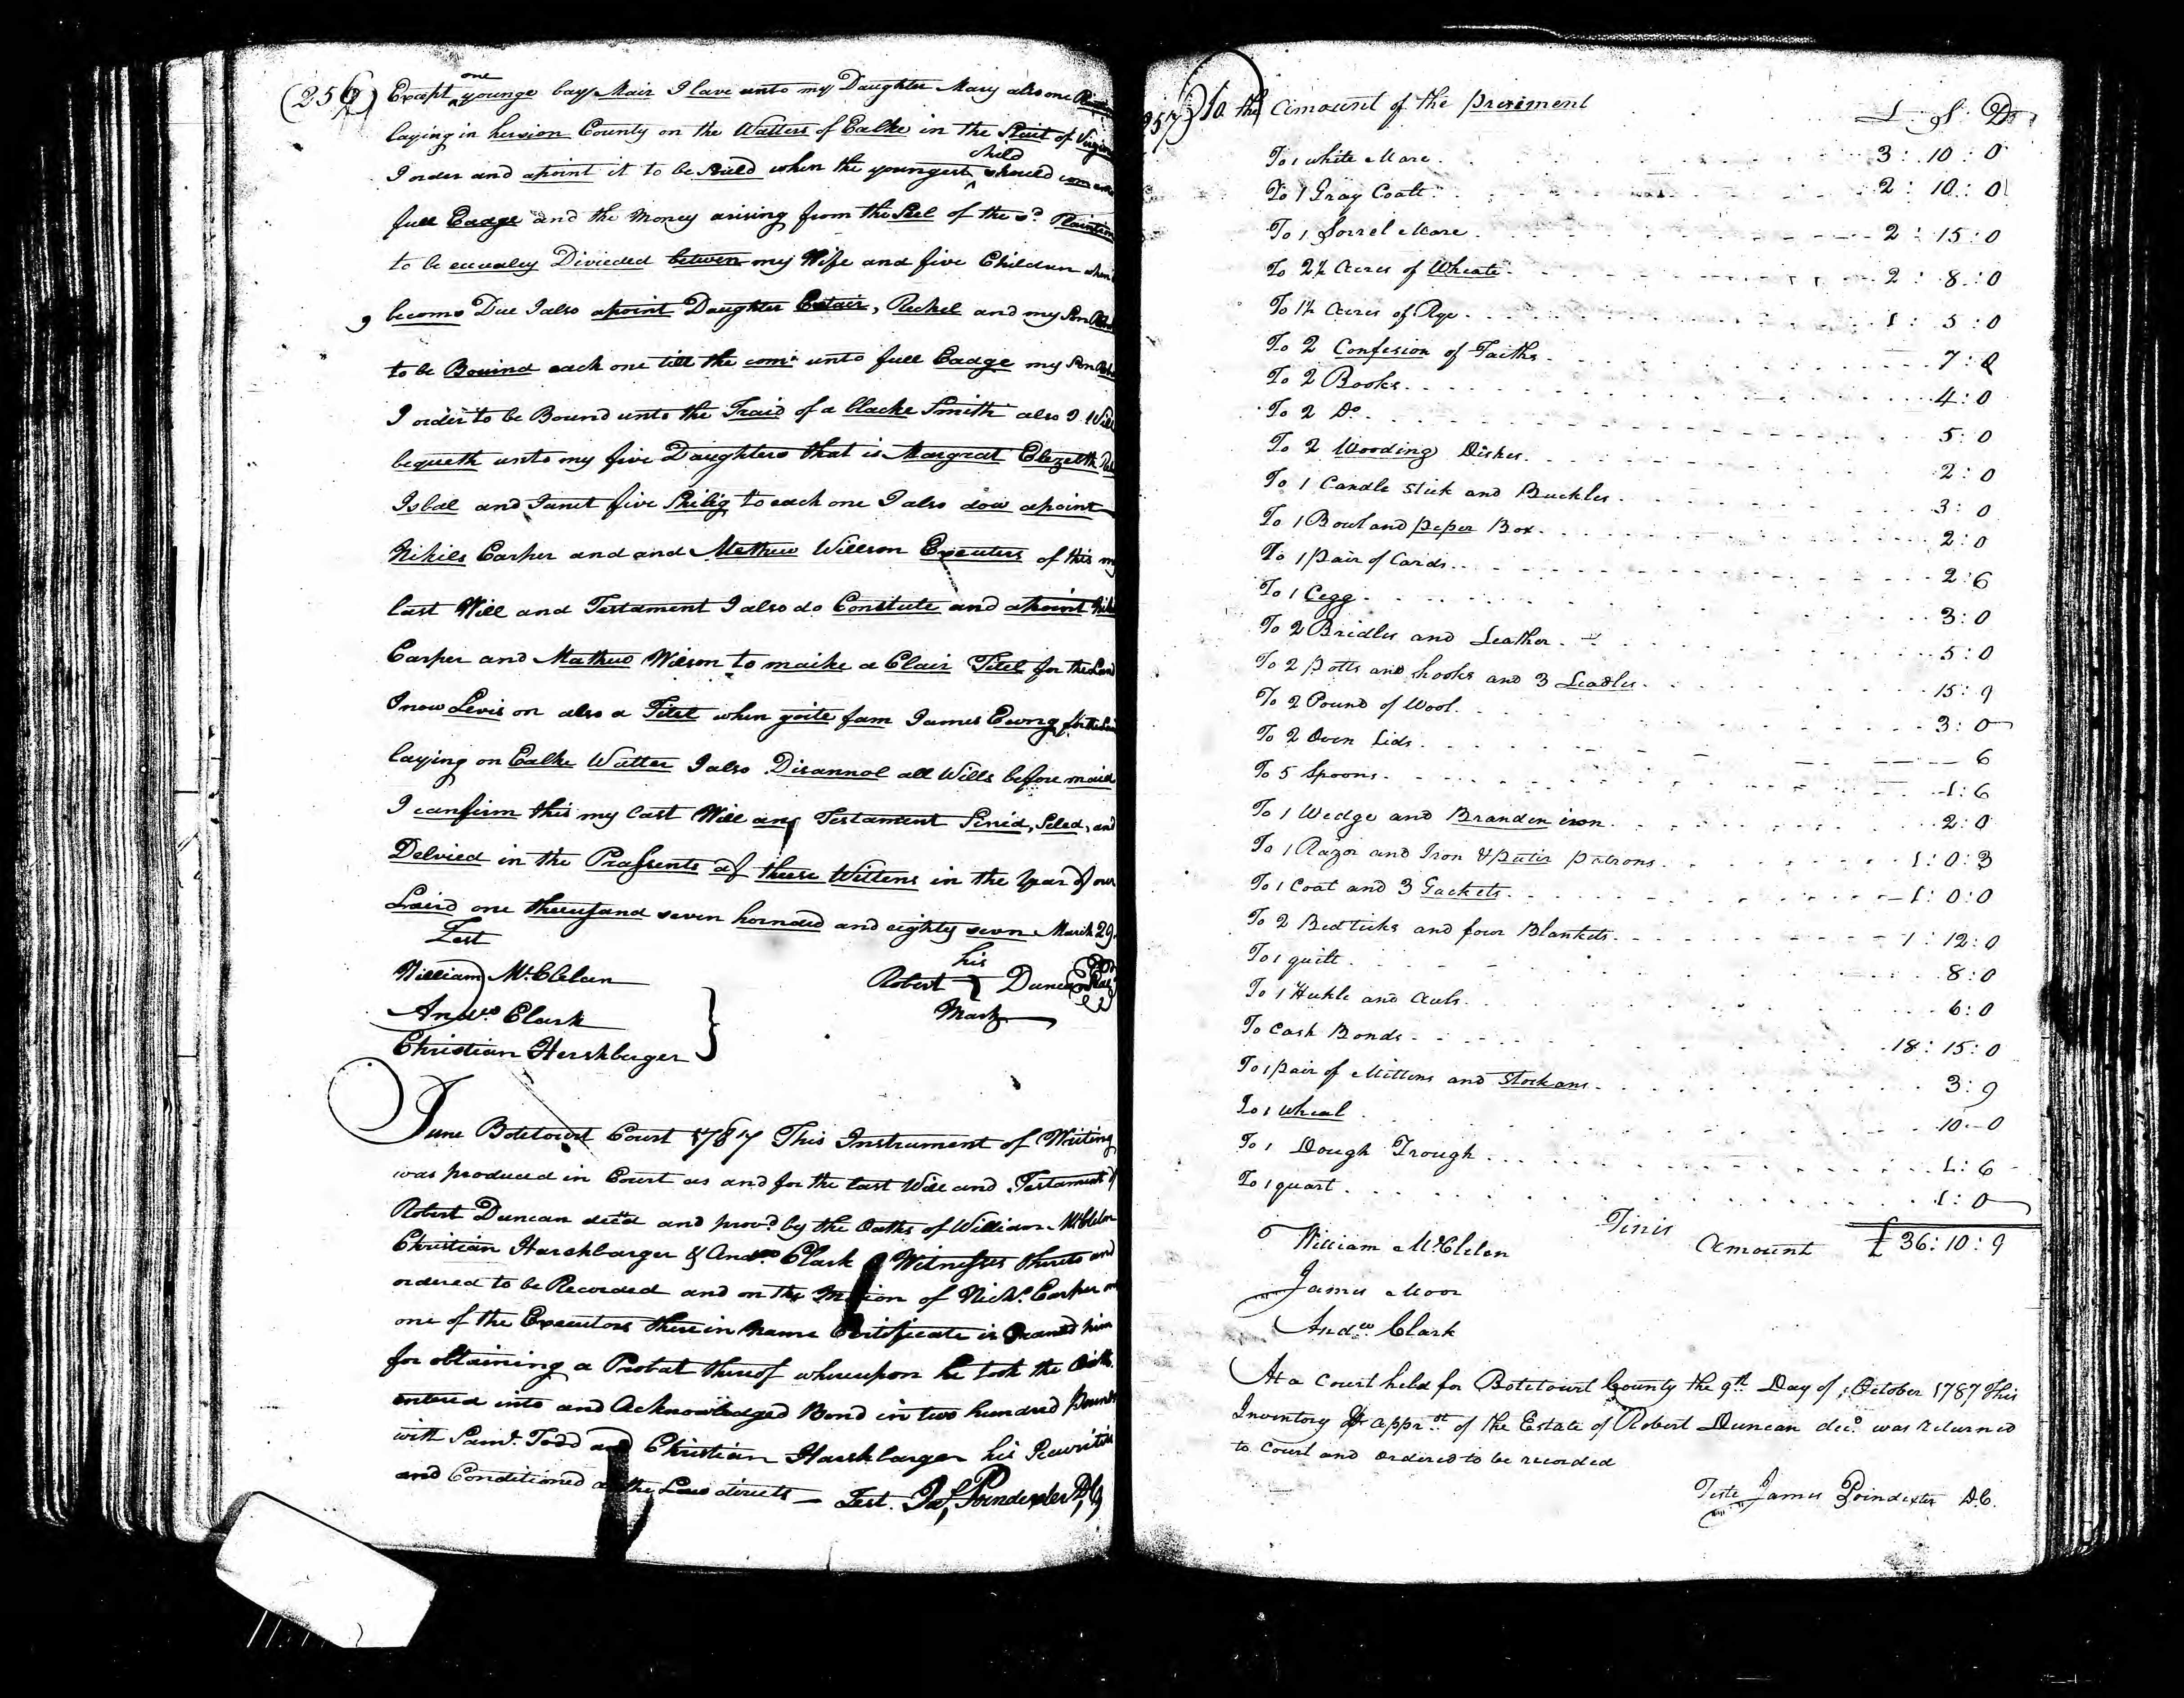 (256)
Except one younge bay Mair I lave unto my Daughter Mary also one
laying in herision County on the Watters of Ealke in the Stait of
I order and apoint it to be Sould when the youngest child should
full Eadge and the Money arising from the Sul of the sd.
to be equaley Divieded betwen my Wife and five Children
becoms Due I also apoint Daughter, Rechel and my Son
to be Bouind each one till the com unto full Eadge my Son
I order to be Bound unto the Traid of a blacke Smith also I
bequeth unto my five Daughters that is Margrat Elezeth
Isbal and Janet five Shilig to each one I also dow apoint
Nikiles Carper and and Mathew Willson Executers of this my
last Will and Testament I also do Constute and apoint
Carper and Mathew Wilson to maike a Clair Titel for the Land
I now Levis on also a Titel when goite fam James Ewing for the
laying on Ealke Watter I also Disannol all Wills before maid
I canfirm this my Last Will and Testament Sinid, Seled, and
Delvied in the Prassents of these Wittens in the Year of our
Laird one theusand seven horndred and eighty sevn March 29.
Test
William McClelan
Andw. Clark
Christian Hershberger
his
Robert Duncan
Mark
June Botetourt Court 1787 This Instrument of Writing
was produced in Court as and for the last Will and Testament of
Robert Duncan decd. and provd. by the Oaths of William McClelan
Christian Harshbarger & Andw. Clark Witnesses thereto and
ordered to be Recorded and on the Motion of Nichs. Carper
one of the Executors therein Name Certificate is Granted him
for obtaining a Probat thereof whereupon he took the Oath
entered into and Acknowledged Bond in two hundred Pounds
with Saml. Todd and Christian Harshbarger his Securities
and Conditioned as the Law directs — Test. Jas. Poindexter DC
257) To the Amount of the praisment
£ : S : D
To 1 white Mare 3 : 10 : 0
To 1 Gray Coalt 2 : 10 : 0
To 1 Sorrel Mare 2 : 15 : 0
To 2½ Acres of Wheate 2 : 8 : 0
To 1½ Acres of Rye 1 : 5 : 0
To 2 Confesion of Faiths 7 :
To 2 Books 4 : 0
To 2 Do. 5 : 0
To 2 Wooding Dishes 2 : 0
To 1 Candle Stick and Buckles 3 : 0
To 1 Bowl and peper Box 2 : 0
To 1 pair of Cards 2 : 6
To 1 Cegg 3 : 0
To 2 Bridles and Leather 5 : 0
To 2 potts and hooks and 3 Leadles 15 : 9
To 2 Pound of Wool 3 : 0
To 2 Oven Lids 6
To 5 Spoons 1 : 6
To 1 Wedge and Branden iron 2 : 0
To 1 Razor and Iron & putir patrons 1 : 0 : 3
To 1 Coat and 3 Gackets 1 : 0 : 0
To 2 Bed ticks and four Blankets 1 : 12 : 0
To 1 quilt 8 : 0
To 1 Hukle and Auls 6 : 0
To Cash Bonds 18 : 15 : 0
To 1 pair of Mittens and Stockans 3 : 9
To 1 wheal 10 - 0
To 1 Dough Trough 1 : 6
To 1 quart 1 : 0
Finis
Amount £ 36 : 10 : 9
William McClelon
James Moor
Andw. Clark
At a Court held for Botetourt County the 9th. Day of October 1787 This
Inventory & Apprst. of the Estate of Robert Duncan decd. was returned
to Court and ordered to be recorded
Teste James Poindexter D.C.